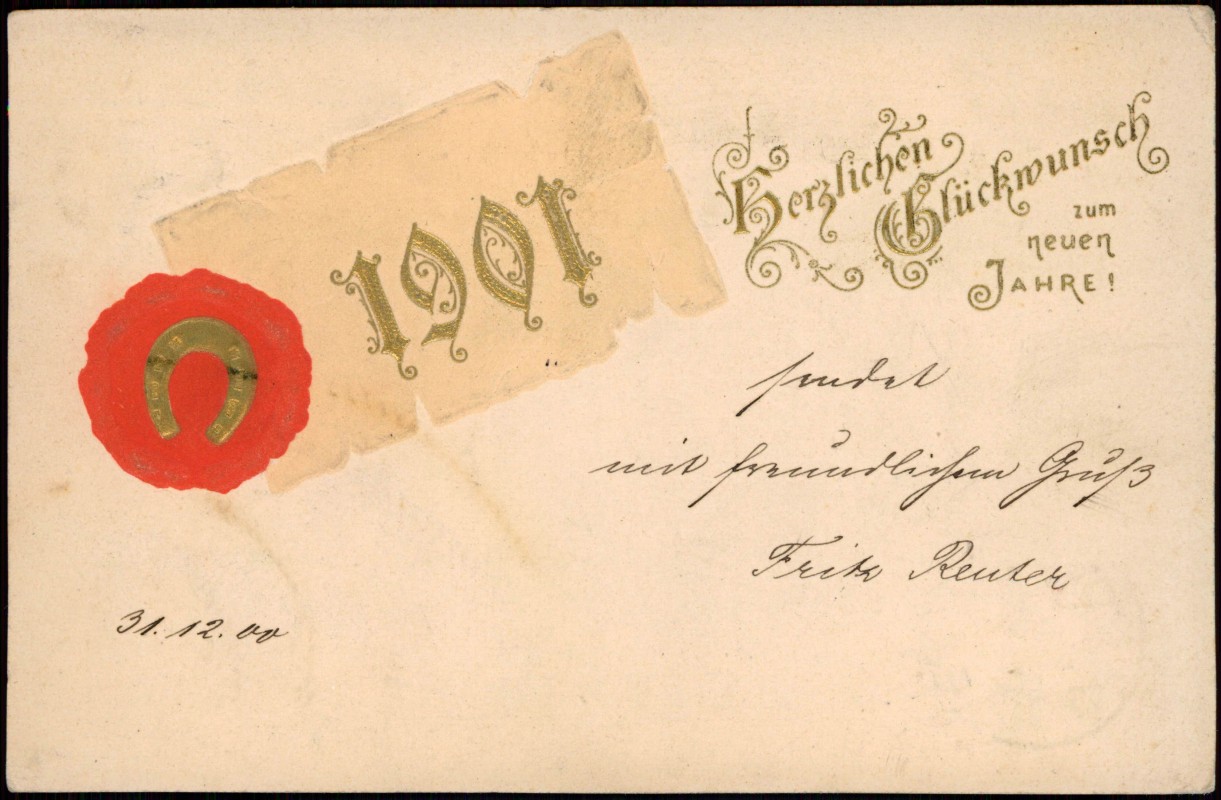 1901
Herzlichen
Glückwunsch
zum
neuen
JAHRE!
sendet
mit freundlichem Gruß
Fritz Reuter
31.12.00